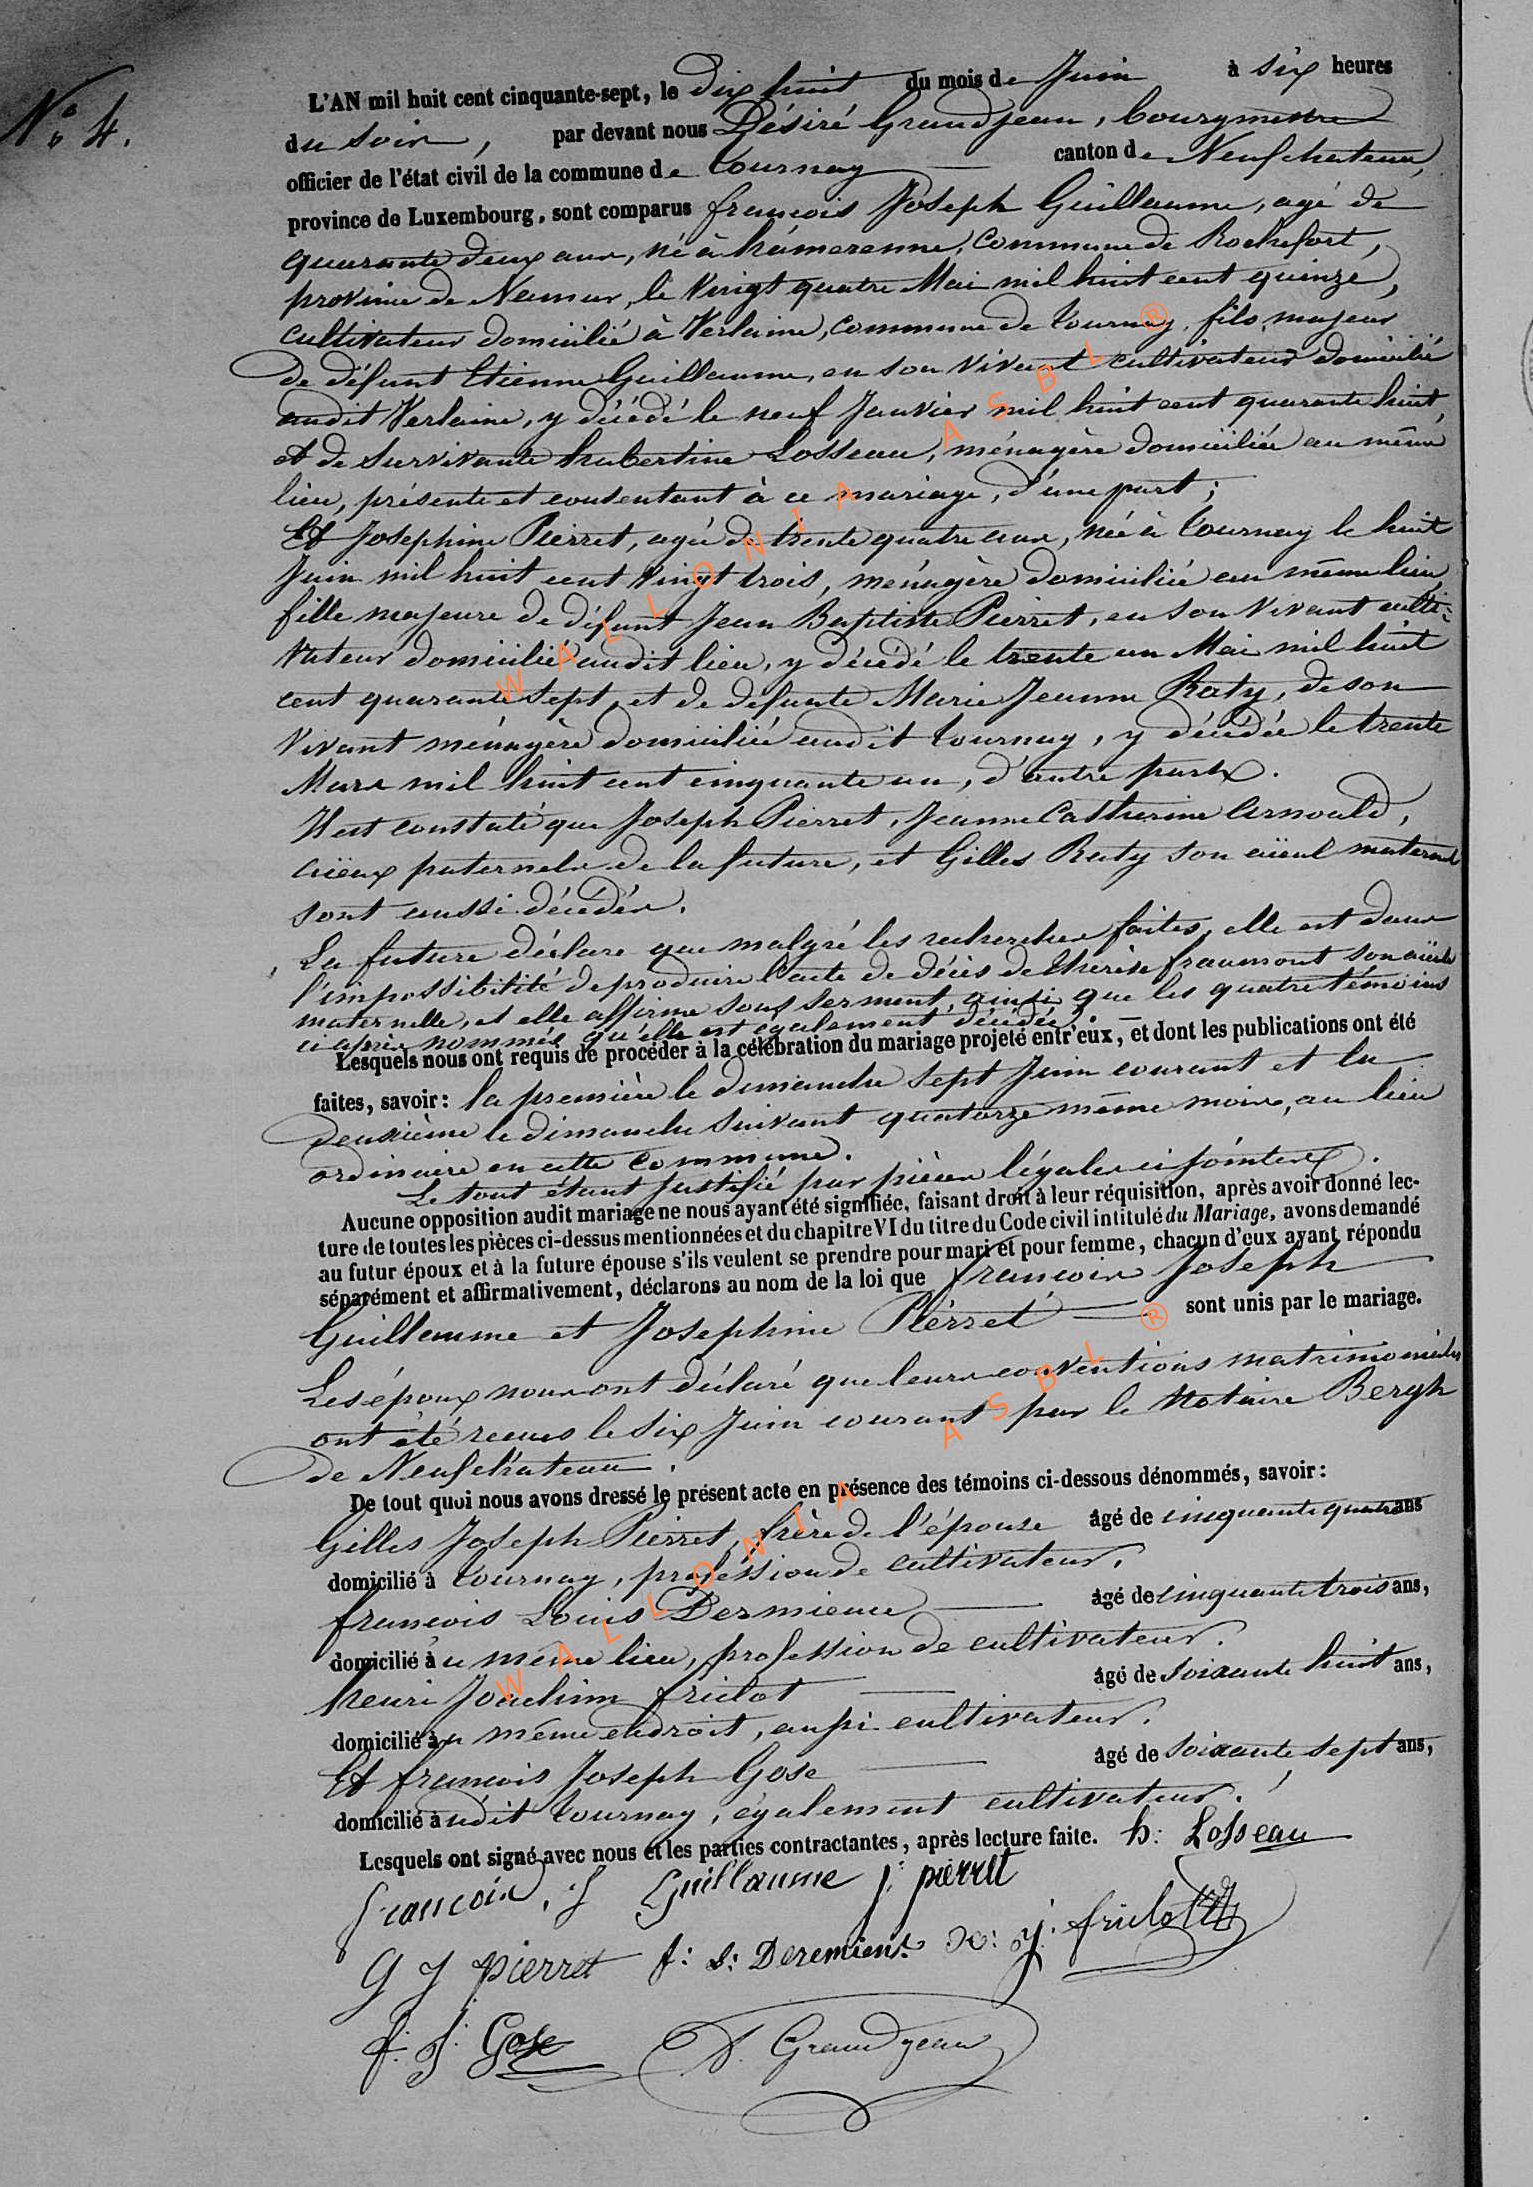 N° 4.
L'AN mil huit cent cinquante-sept, le dix huit du mois de Juin à six heures
du soir, par devant nous Désiré Grandjean, bourgmestre
officier de l'état civil de la commune de Tournay canton de Neufchateau,
province de Luxembourg, sont comparus françois Joseph Guillaume, agé de
quarante deux ans, né à hamerenne, commune de Rochefort,
province de Namur, le Vingt quatre Mai mil huit cent quinze,
cultivateur domicilié à Verlaine, commune de Tournay, fils majeur
de défunt Etienne Guillaume, en son vivant cultivateur domicilié
audit Verlaine, y décédé le neuf Janvier mil huit cent quarante huit,
et de Survivante hubertine Losseau, ménagère domiciliée au même
lieu, présente et consentant à ce mariage, d'une part;
Et Josephine Pierret, agée de trente quatre ans, née à Tournay le huit
Juin mil huit cent vingt trois, ménagère domiciliée au même lieu,
fille majeure de défunt Jean Baptiste Pierret, en son vivant culti-
vateur domicilié audit lieu, y décédé le trente un Mai mil huit
cent quarante sept, et de defunte Marie Jeanne Raty, de son
vivant ménagère domiciliée audit Tournay, y décédée le trente
Mars mil huit cent cinquante un, d'autre part.
Il est constaté que Joseph Pierret, Jeanne Catherine Arnould,
aïeux paternels de la future, et Gilles Raty son aïeul maternel
sont aussi décédés.
La future déclare que malgré les recherches faites, elle est dans
l'impossibilité de produire l'acte de décès de thérèse fraumont son aïeule
maternelle, et elle affirme sous serment, ainsi que les quatre témoins
ci après nommés qu'elle est également décédée.
Lesquels nous ont requis de procéder à la célébration du mariage projeté entr'eux, et dont les publications ont été
faites, savoir: la première le dimanche sept Juin courant et la
deuxième le dimanche suivant quatorze même mois, au lieu
ordinaire en cette commune.
Le tout étant justifié par pièces légales ci jointes.
Aucune opposition audit mariage ne nous ayant été signifiée, faisant droit à leur réquisition, après avoir donné lec-
ture de toutes les pièces ci-dessus mentionnées et du chapitre VI du titre du Code civil intitulé du Mariage, avons demandé
au futur époux et à la future épouse s'ils veulent se prendre pour mari et pour femme, chacun d'eux ayant répondu
séparément et affirmativement, déclarons au nom de la loi que françois Joseph
Guillaume et Josephine Pierret sont unis par le mariage.
Les époux nous ont déclaré que leurs conventions matrimoniales
ont été recues le six Juin courant par le Notaire Bergh
de Neufchateau.
De tout quoi nous avons dressé le présent acte en présence des témoins ci-dessous dénommés, savoir:
Gilles Joseph Pierret, frère de l'épouse âgé de cinquante quatre ans
domicilié à Tournay, profession de cultivateur.
françois Louis Dermience âgé de cinquante trois ans,
domicilié au même lieu, profession de cultivateur.
henri Joachim friclot âgé de soixante huit ans,
domicilié au même endroit, aussi cultivateur.
Et françois Joseph Gose âgé de soixante sept ans,
domicilié audit Tournay, également cultivateur.
Lesquels ont signé avec nous et les parties contractantes, après lecture faite. h: Losseau
francois, J Guillaume j: pierret
G J pierret f: L: Deremiens j: friclot
f: J: Gose D. Grandjean
WALLONIA ASBL ®
WALLONIA ASBL ®